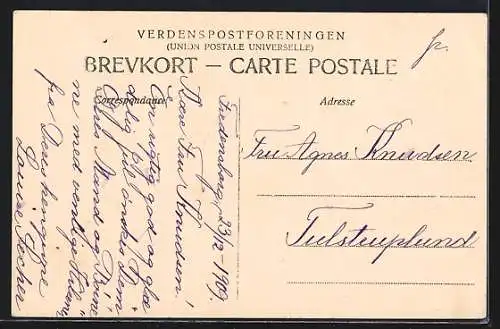 VERDENSPOSTFORENINGEN
(UNION POSTALE UNIVERSELLE)
BREVKORT — CARTE POSTALE
Correspondance
Adresse
Fredensborg, 23/12-1909.
Kære Fru Knudsen!
En rigtig god og glæ
delig Jul ønskes Dem
Deres Mand og Børne
ne med venlige Hilsen
fra Deres hengivne
Louise
Fru Agnes Knudsen